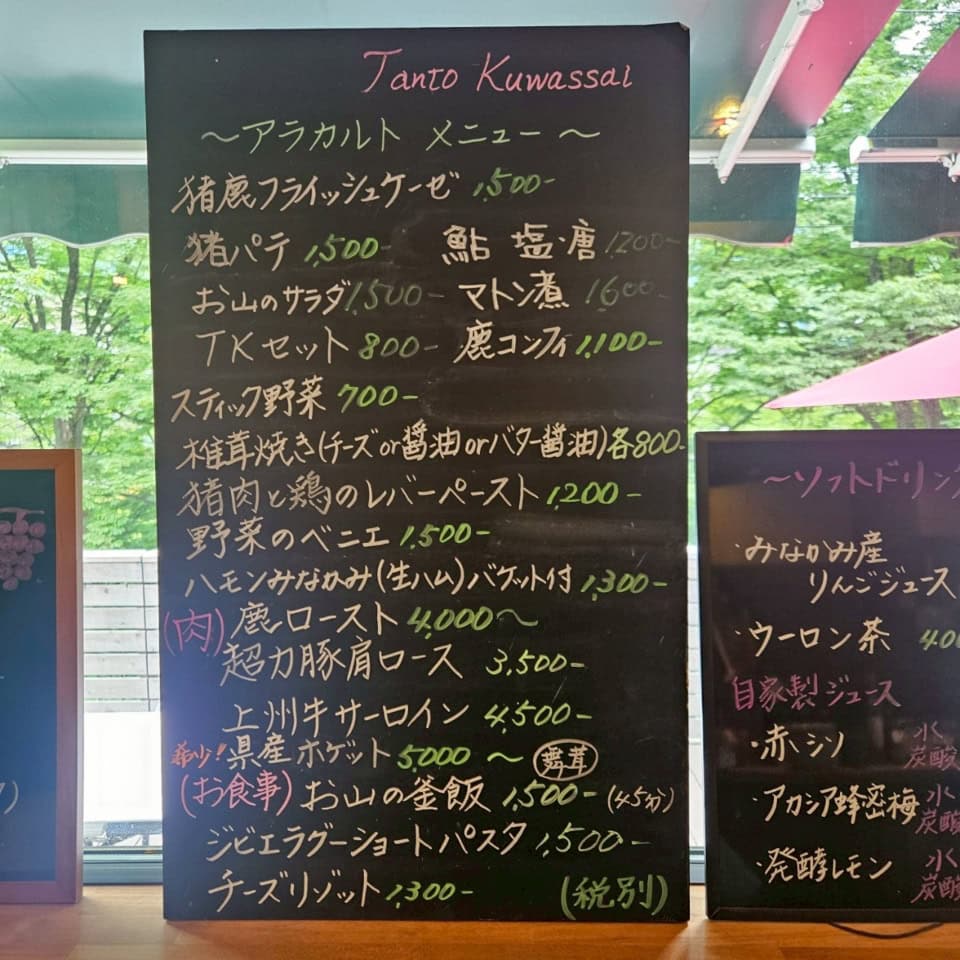 Tanto Kuwassai
～アラカルト メニュー～
猪鹿フライッシュケーゼ 1,500-
猪パテ 1,500- 鮎 塩・唐 1200-
お山のサラダ 1,500- マトン煮 1600-
TKセット 800- 鹿コンフィ 1,100-
スティック野菜 700-
椎茸焼き(チーズor醤油orバター醤油)各800-
猪肉と鶏のレバーペースト 1,200-
野菜のベニエ 1,500-
ハモンみなかみ(生ハム)バゲット付 1,300-
(肉) 鹿ロースト 4,000～
超力豚肩ロース 3,500-
上州牛サーロイン 4,500-
希少!県産ホゲット 5,000～ 舞茸
(お食事) お山の釜飯 1,500- (45分)
ジビエラグーショートパスタ 1,500-
チーズリゾット 1,300- (税別)
～ソフトドリン
・みなかみ産
りんごジュース
・ウーロン茶 400
自家製ジュース
・赤シソ 水 炭酸
・アカシア蜂蜜梅 水 炭酸
・発酵レモン 水 炭酸